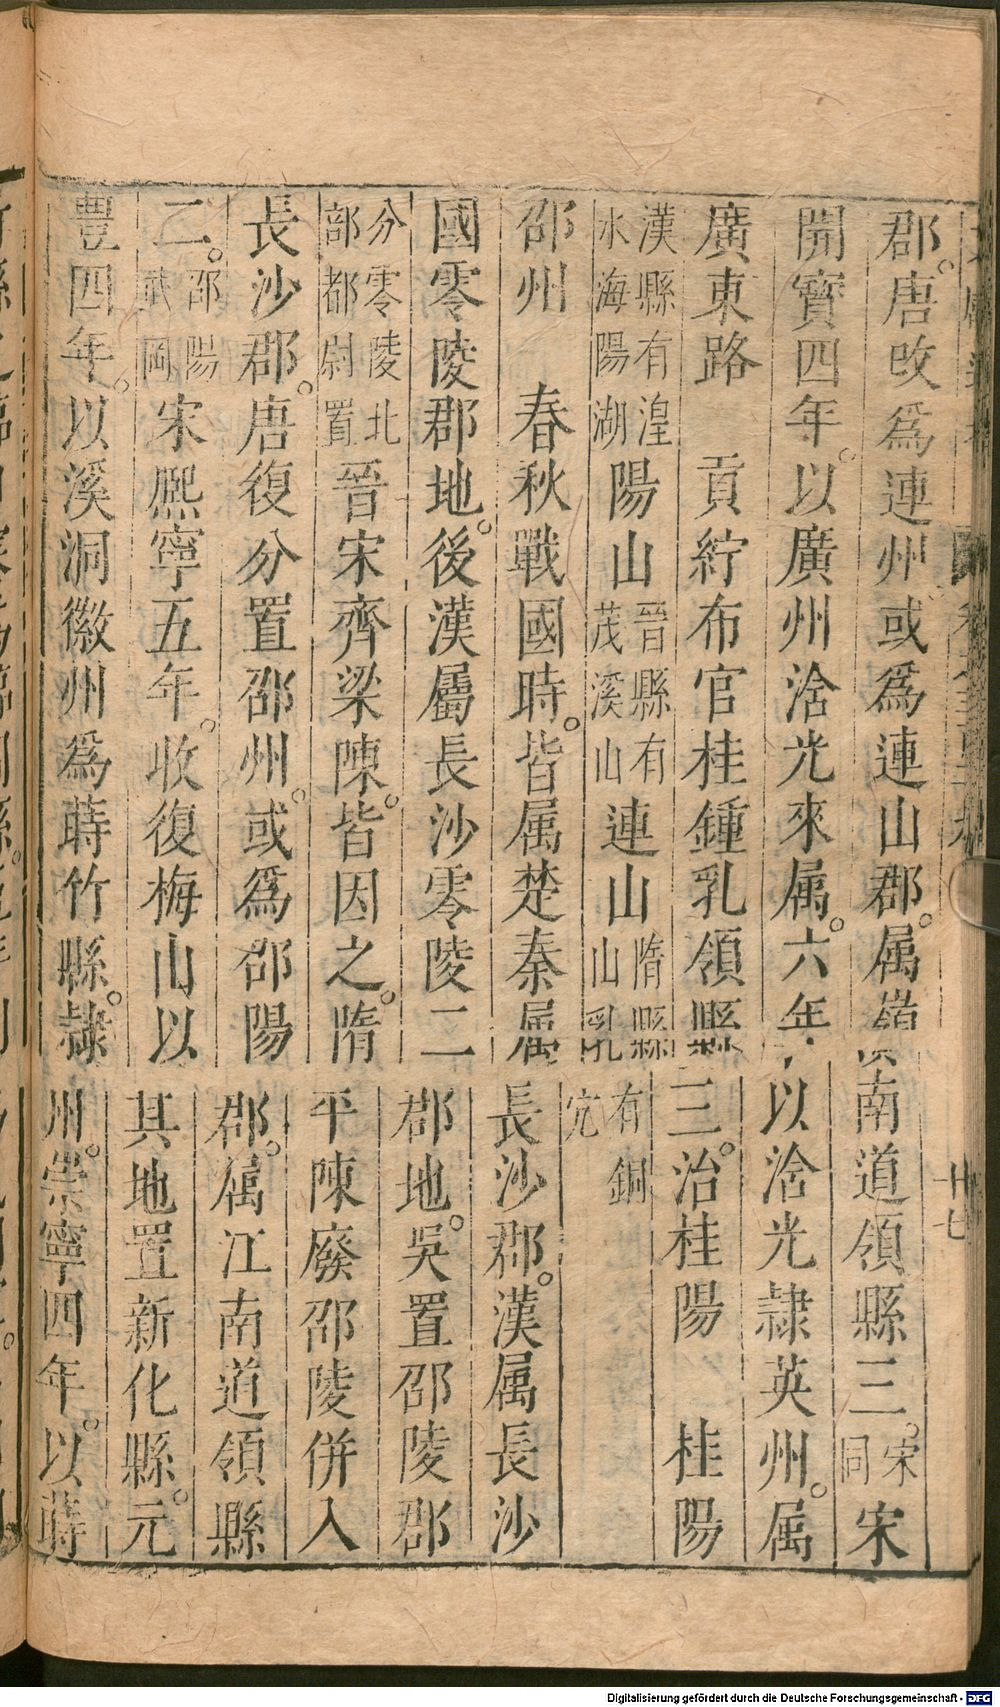 郡。唐改爲連州。或爲連山郡。属嶺南道領縣三。宋同宋
開寶四年。以廣州浛光來属。六年以浛光隷英州。属
廣東路　貢紵布官桂鍾乳領縣三。治桂陽　桂陽
漢縣有湟水海陽湖陽山晉縣有茂溪山連山隋縣有銅山乳穴
邵州　春秋戰國時。皆属楚秦属長沙郡。漢属長沙
國零陵郡地。後漢屬長沙零陵二郡地。吳置邵陵郡
分零陵北部都尉置晉宋齊梁陳。皆因之。隋平陳廢邵陵併入
長沙郡。唐復分置邵州。或爲邵陽郡。属江南道領縣
二。邵陽武岡宋熙寧五年。收復梅山以其地置新化縣。元
豊四年。以溪洞徽州爲蒔竹縣。隷州。崇寧四年。以蒔
十七
Digitalisierung gefördert durch die Deutsche Forschungsgemeinschaft - DFG